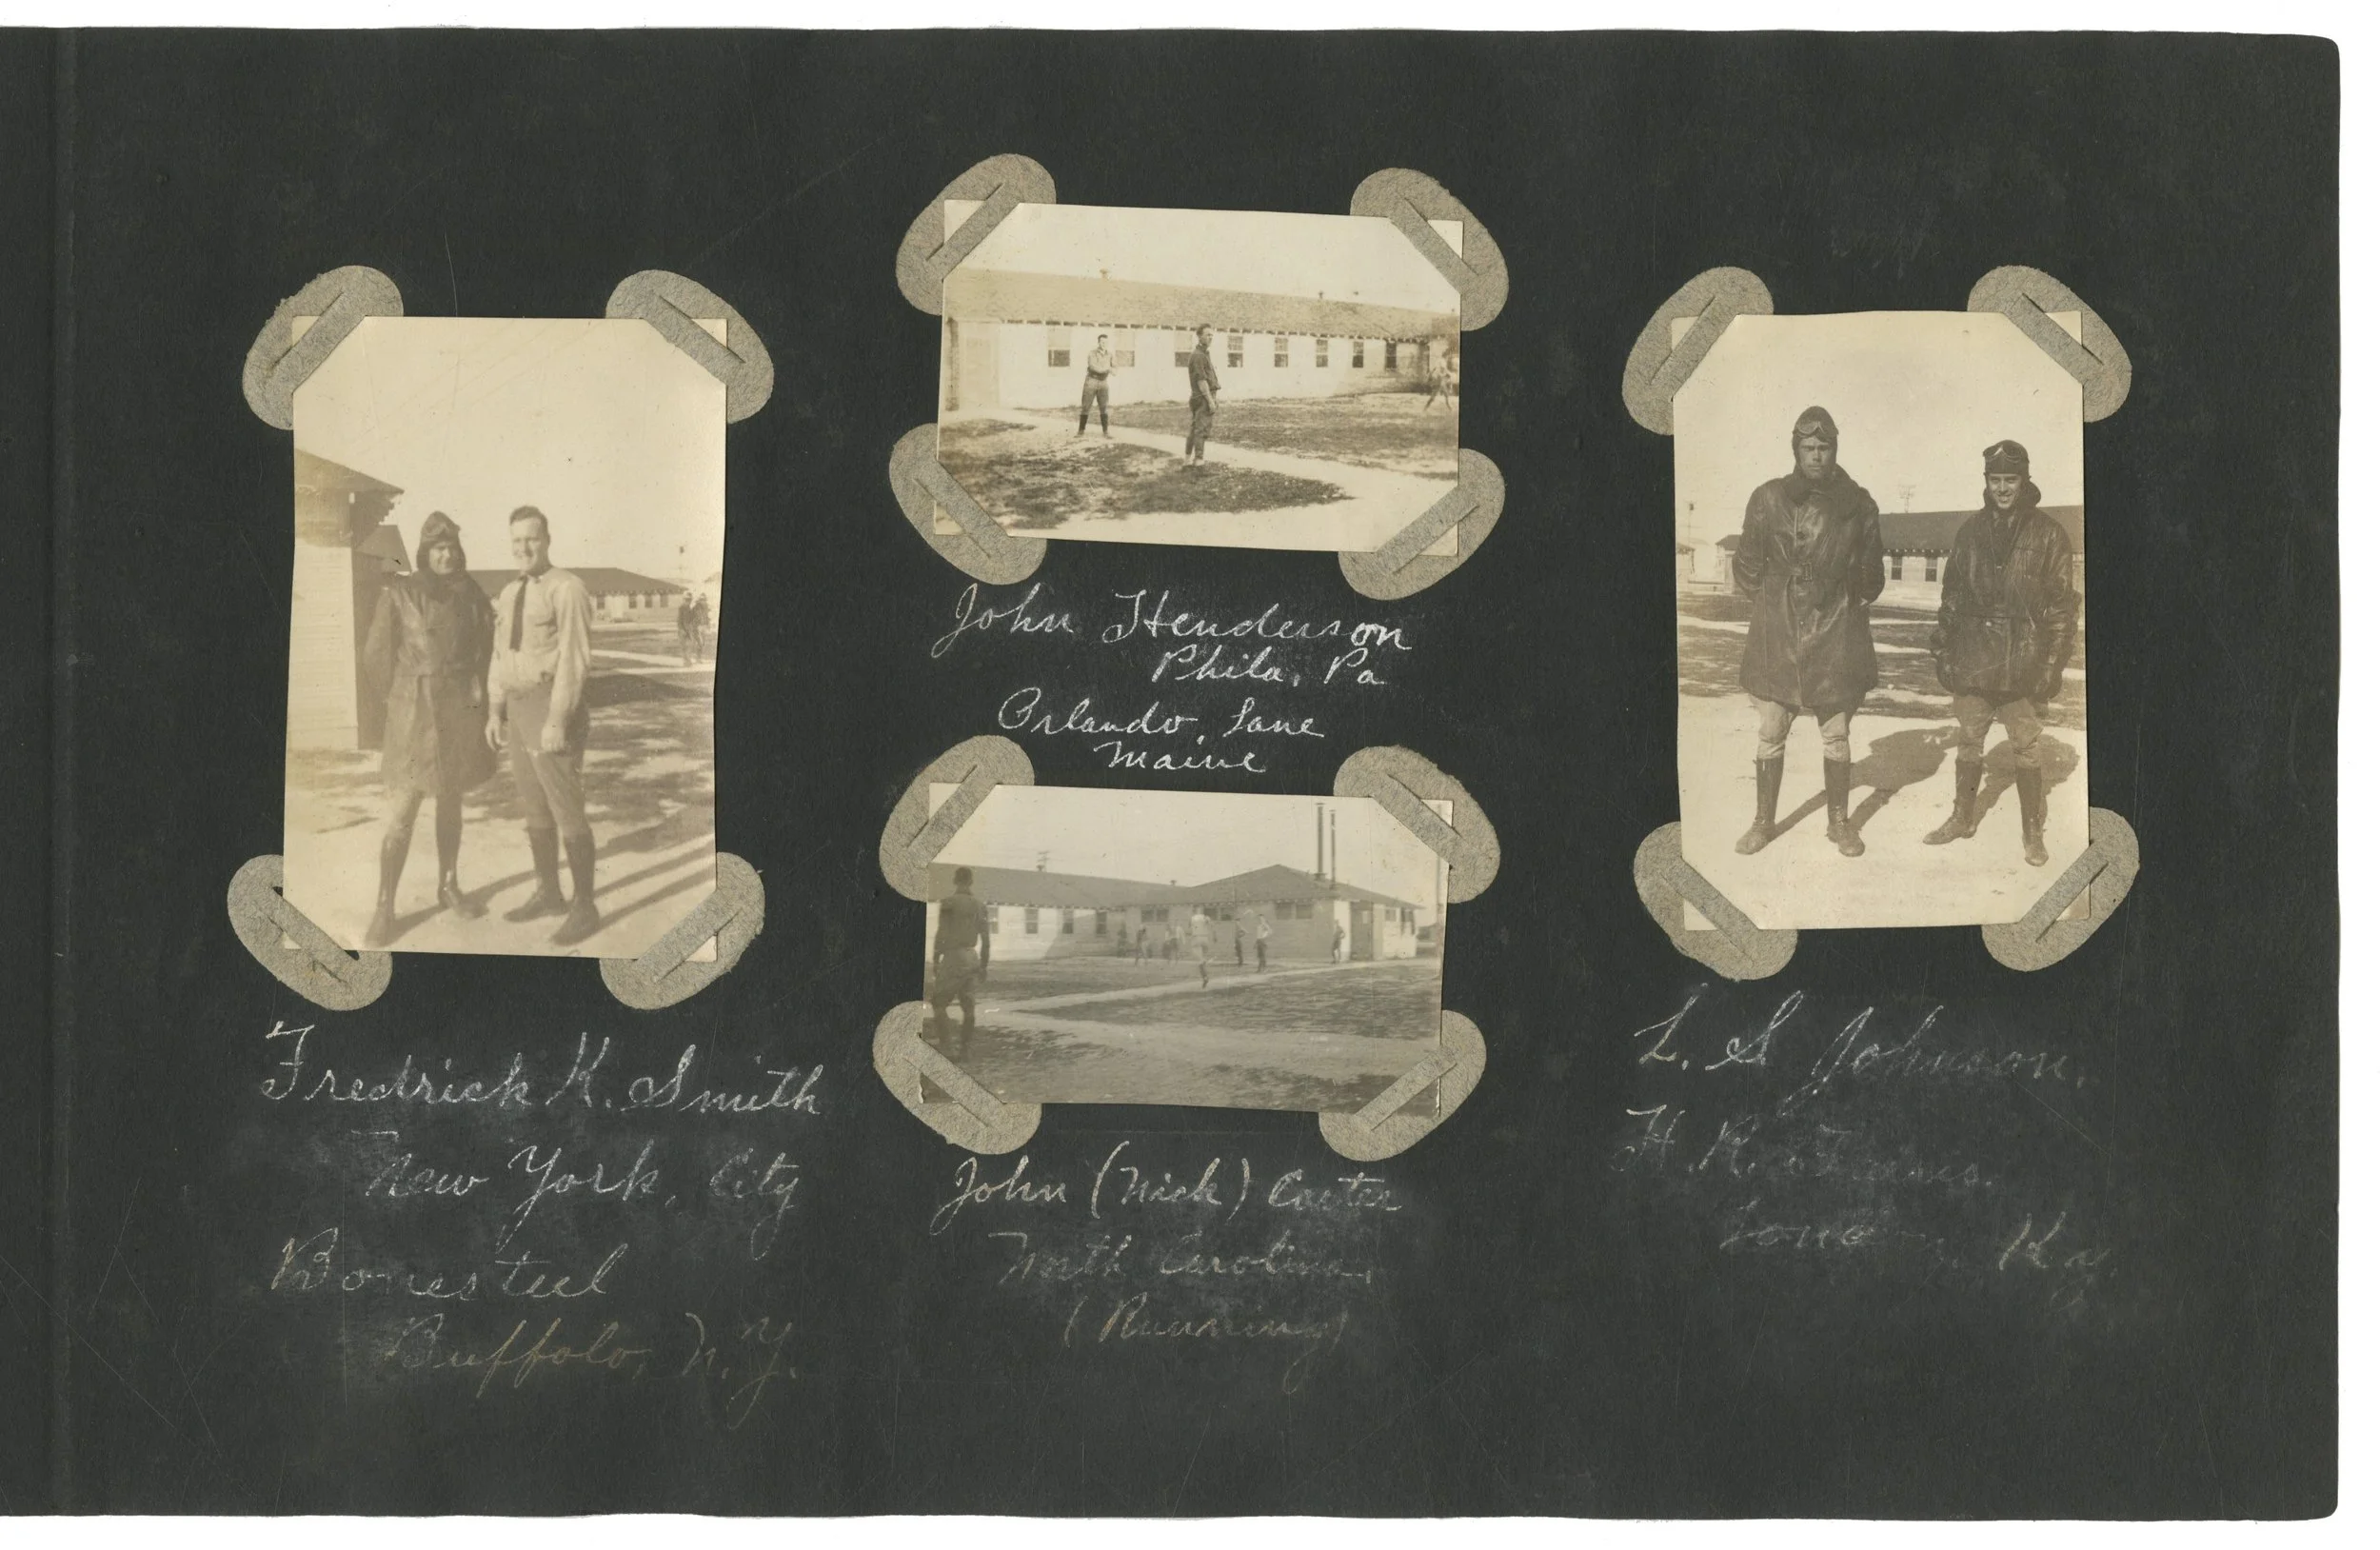 Fredrick K. Smith
New York, City
Bonesteel
Buffolo, N.Y.
John Henderson
Phila, Pa
Orlando, Lane
Maine
John (Nick) Carter
North Carolina,
(Running)
L. S Johnson.
H. R.
Ky.